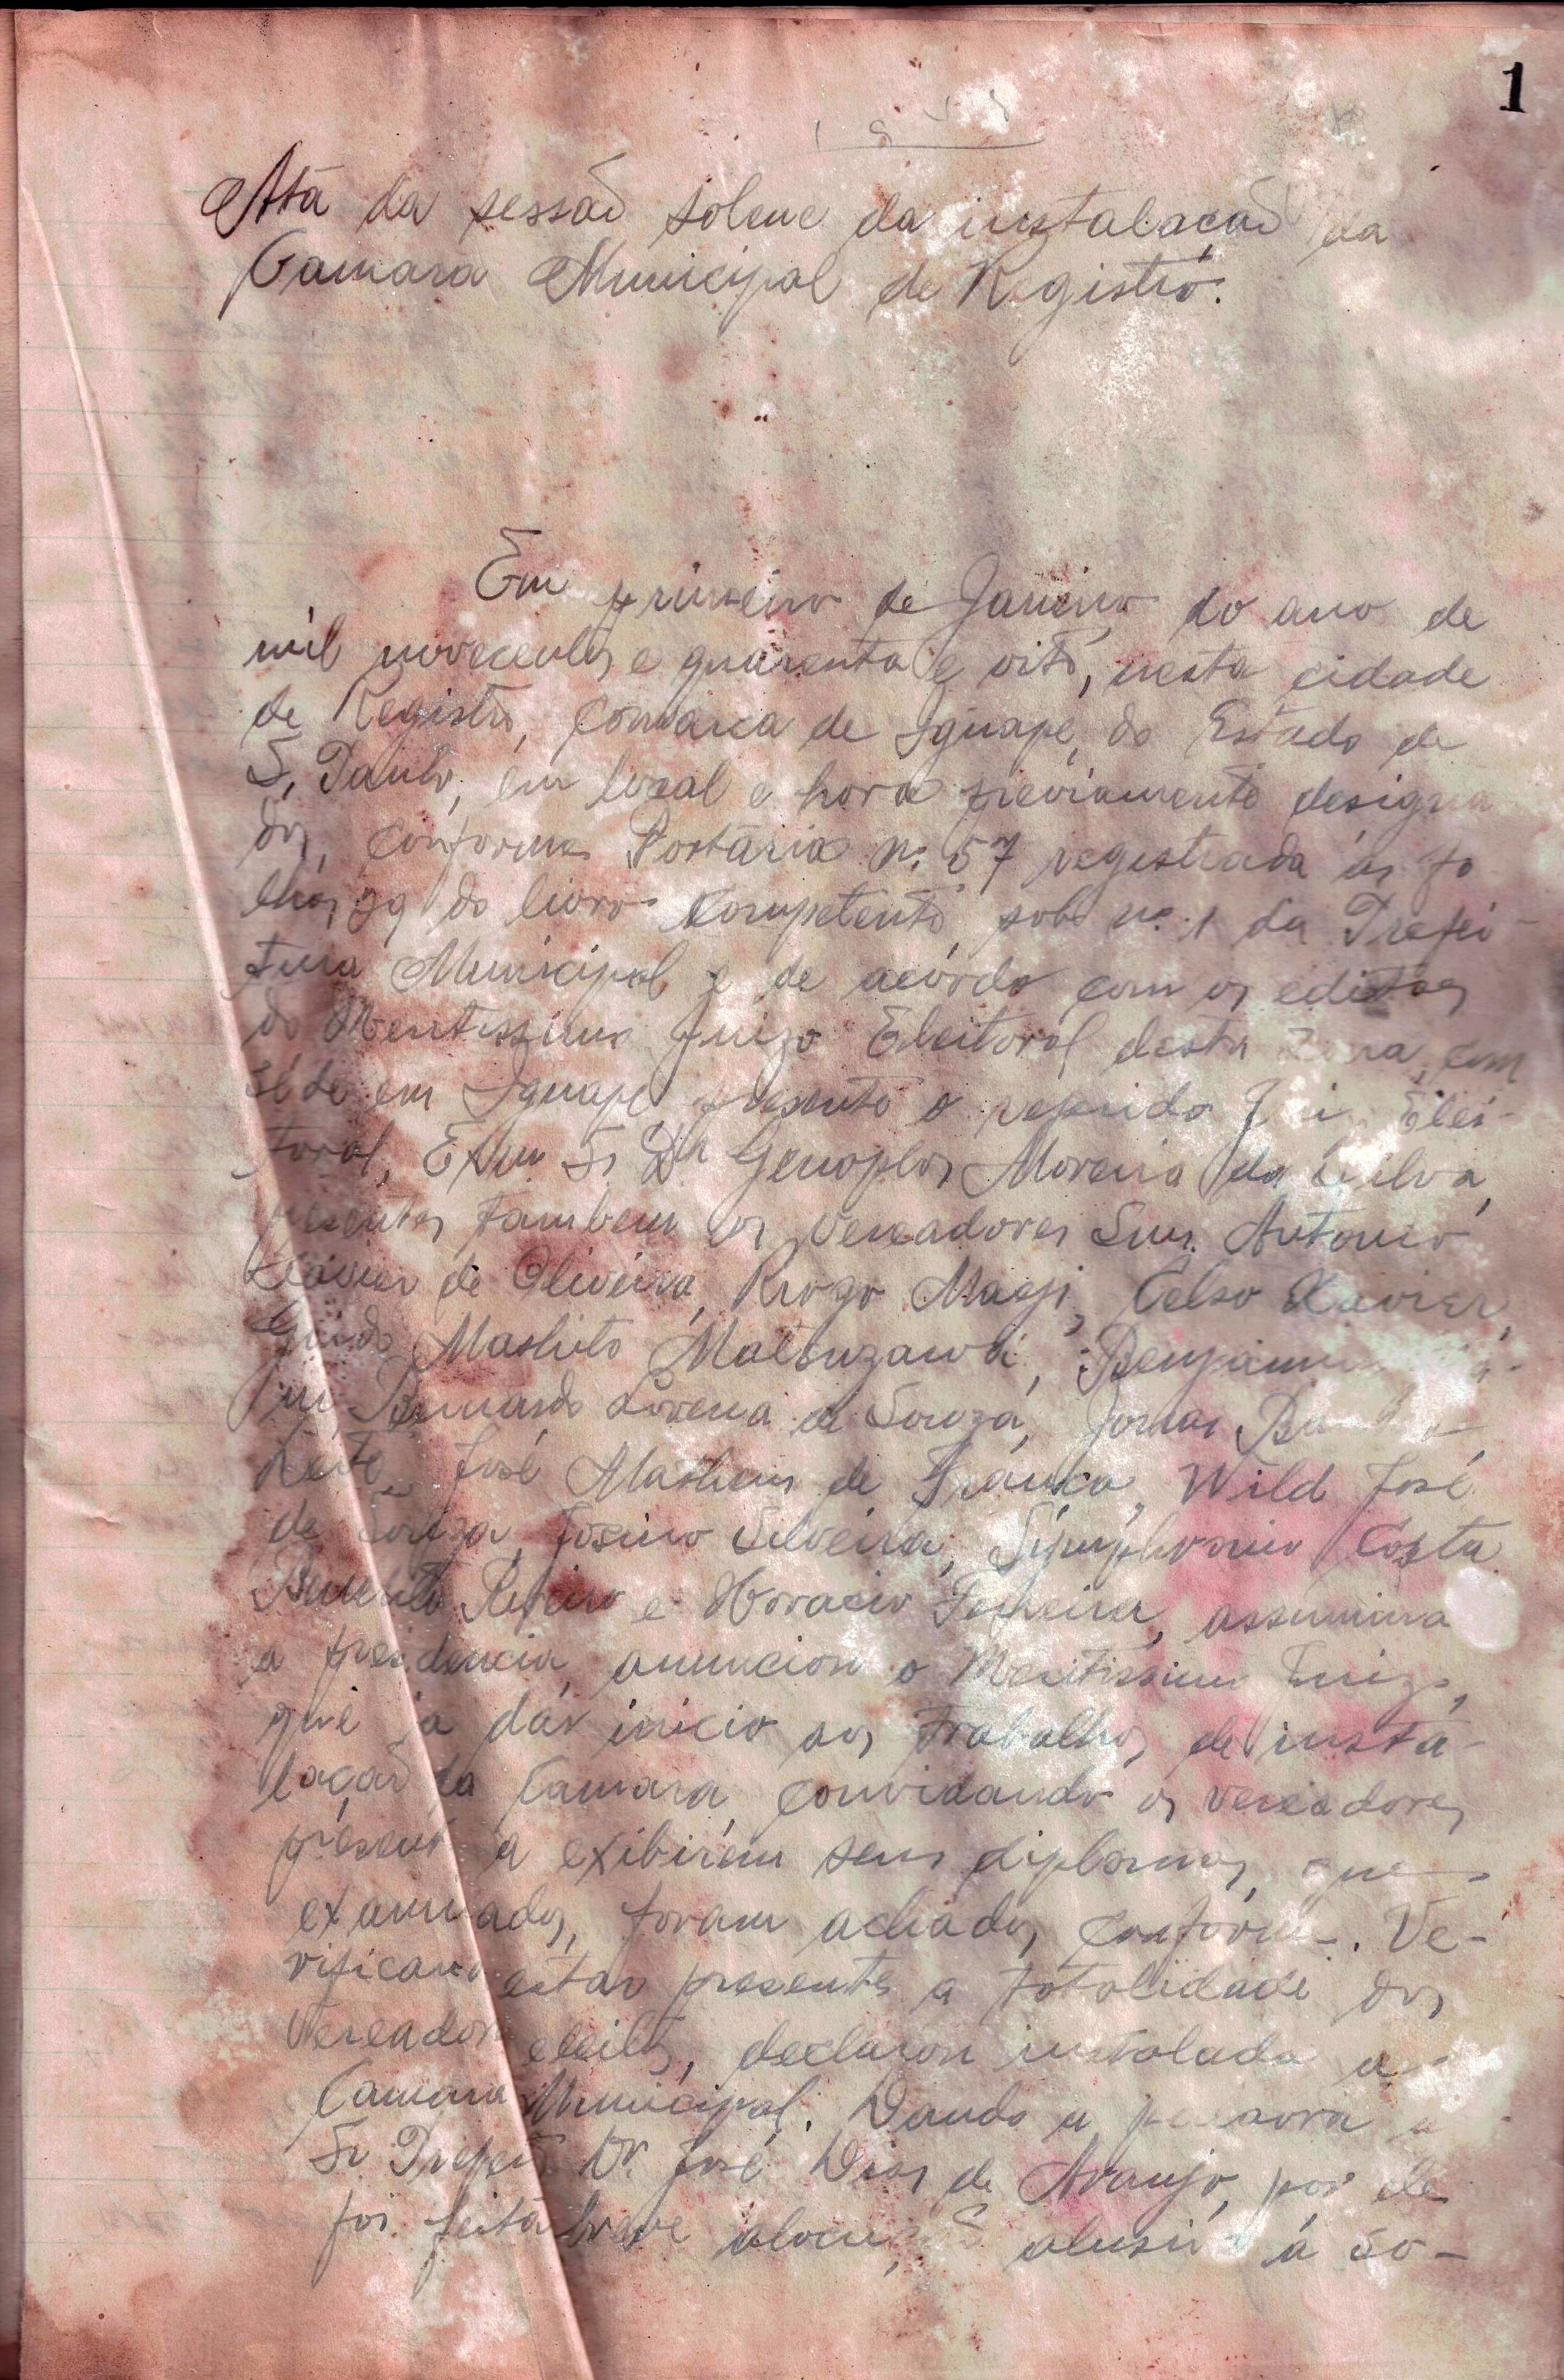 1
Ata da sessaõ solene da instalaçaõ da
Camara Municipal de Registro.
Em primeiro de Janeiro do ano de
mil novecentos e quarenta e oito, nesta cidade
de Registro, Comarca de Iguape, do Estado de
S. Paulo, em local e hora previamente designa
dos, conforme Portaria nº 57 registrada ás fo
lhas 39 do livro competente, sob nº 1 da Prefei-
tura Municipal e de acôrdo com os editaes
do Meritissimo Juizo Eleitoral desta com
séde em Iguape presente o referido Elei-
toral, Exmº Sr. Dr. Moreira da Silva,
presentes tambem os Vereadores Snrs. Antonio
de Oliveira, Celso Xavier,
Guido Mashito Benjamin
Bernardo Lorena de Souza, Jonas
Leite, José Matheus de França, Wild José
de Souza, Josino Silveira, Symphronio Costa
Benedito e Horacio Teixeira, assumira
a presidencia, anunciou o Meritissimo Juizo,
que ia dár inicio aos trabalhos de insta-
laçaõ da Camara, convidando os vereadores
a exibirem seus diplomas, que
examinados, foram achados Ve-
estar presente a totalidade dos
eleitos, declarou instalada a
Camara Municipal. Dando a palavra
Sr. Prefeito Dr. José Dias de Araujo, por ele
foi feita breve á so-